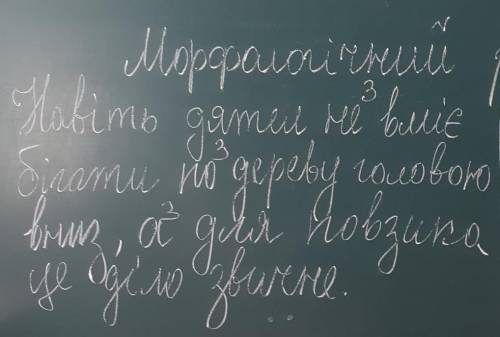 Морфологічний
Навіть дятел не³ вміє
бігати по³ дереву головою
вниз, а³ для повзика
це діло звичне.